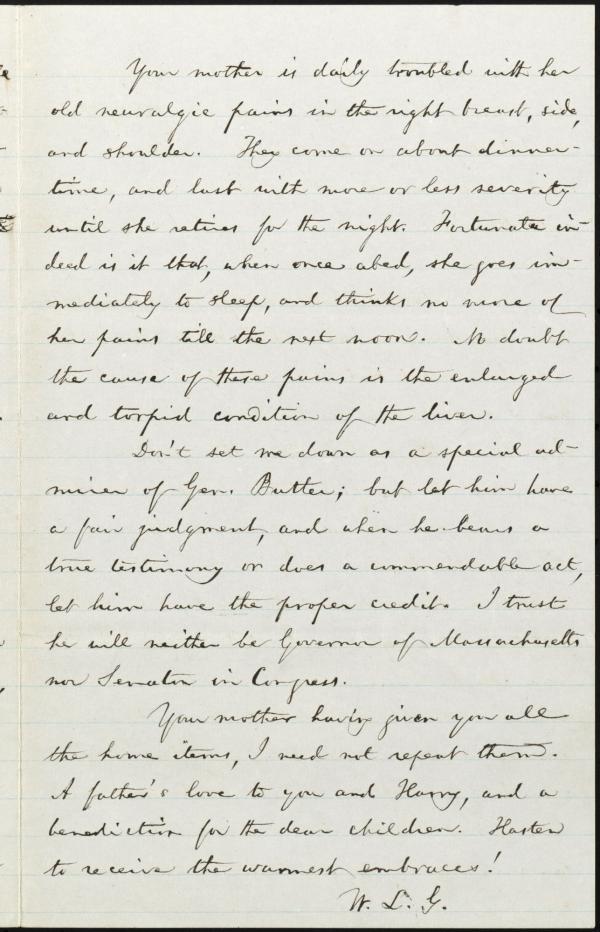 Your mother is daily troubled with her
old neuralgic pains in the right breast, side,
and shoulder. They come on about dinner-
time, and last with more or less severity
until she retires for the night. Fortunate in-
deed is it that, when once abed, she goes im-
mediately to sleep, and thinks no more of
her pains till the next noon. No doubt
the cause of these pains is the enlarged
and torpid condition of the liver.
Don't set me down as a special ad-
mirer of Gen. Butler; but let him have
a fair judgment, and when he bears a
true testimony or does a commendable act,
let him have the proper credit. I trust
he will neither be Governor of Massachusetts
nor Senator in Congress.
Your mother having given you all
the home items, I need not repeat them.
A father's love to you and Harry, and a
benediction for the dear children. Hasten
to receive the warmest embraces!
W. L. G.